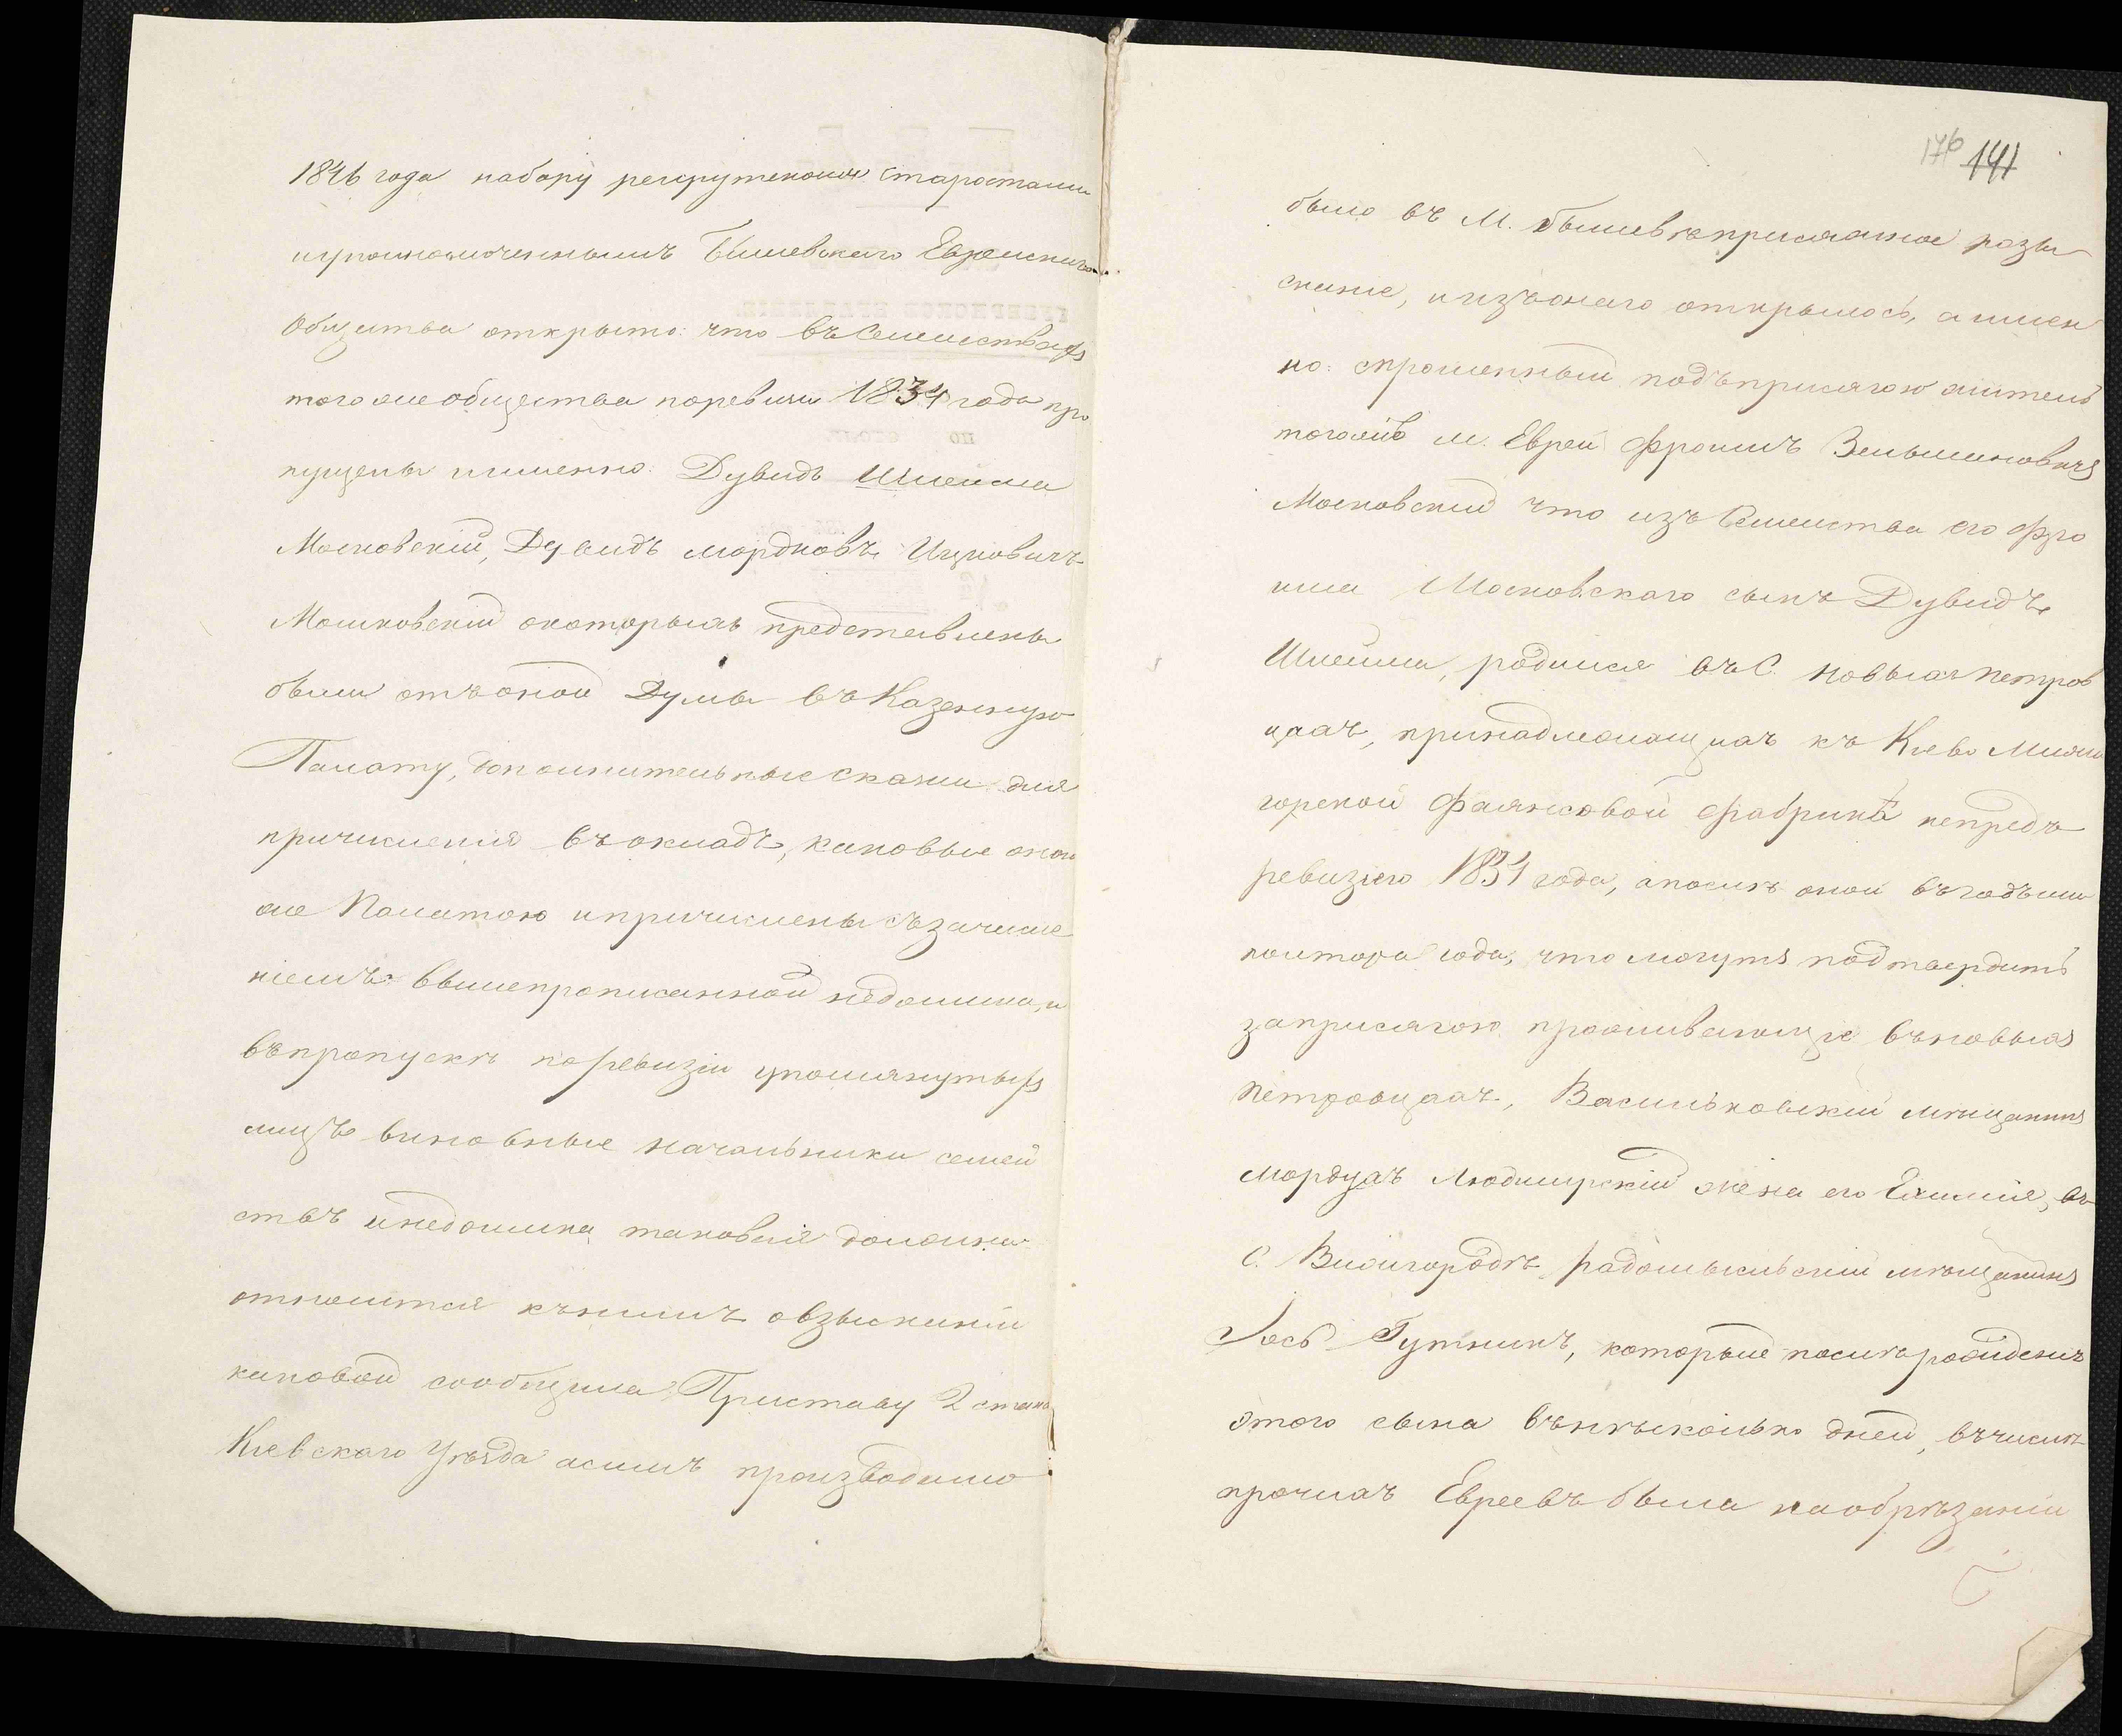 1846 года набору рекрутскими старостами
иуполномоченнымъ Бышевскаго Еврейскаго
Общества открыто: что въ Семействахъ
того же общества поревизіи 1834 года про
пущены именно: Дувидъ Шлейма
Московскій, Дувидъ Мордковъ Ицковичъ
Мошковскій окоторыхъ представлены
были отъ оной Думы въ Казенную
Палату, дополнительные сказки для
причисленія въ окладъ, каковые оною
же Палатою ипричислены съ зачисле
ніемъ вышепрописанной недоимки, и
въпропускѣ поревизіи упомянутыхъ
лицъ виновные начальники семей
ствъ инедоимка таковая должна
относится къ нимъ о взысканіи
каковой сообщила Приставу 2 стана
Кіевскаго Уѣзда асимъ производимо
176 141
было въ М. Бышевѣ присяжное разы
сканіе, и изъ онаго открылось, а имен
но: спрошенный подъ присягою житель
тогожъ м. Еврей Фроимъ Зельмановичъ
Московский что изъ Семейства его Фро
има Московскаго сынъ Дувидъ
Шлейма, родился въ С. Новыхъ Петров
цахъ, принадлежащихъ къ Кіево Межи
горской Фаянсовой Фабрикѣ непредъ
ревизіею 1834 года, апослѣ оной въ годъ или
полтора года, что могутъ подтвердить
заприсягою проживающіе въ новыхъ
Петровцахъ, Васильковскій мѣщанинъ
Мордухъ Людмирскій жена его въ
С. Вышгородѣ радомысльскій мѣщанинъ
Іось Гутникъ, которые послѣ рожденія
этого сына въ нѣсколько дней, въ числѣ
прочихъ Евреевъ была на обрѣзаніи